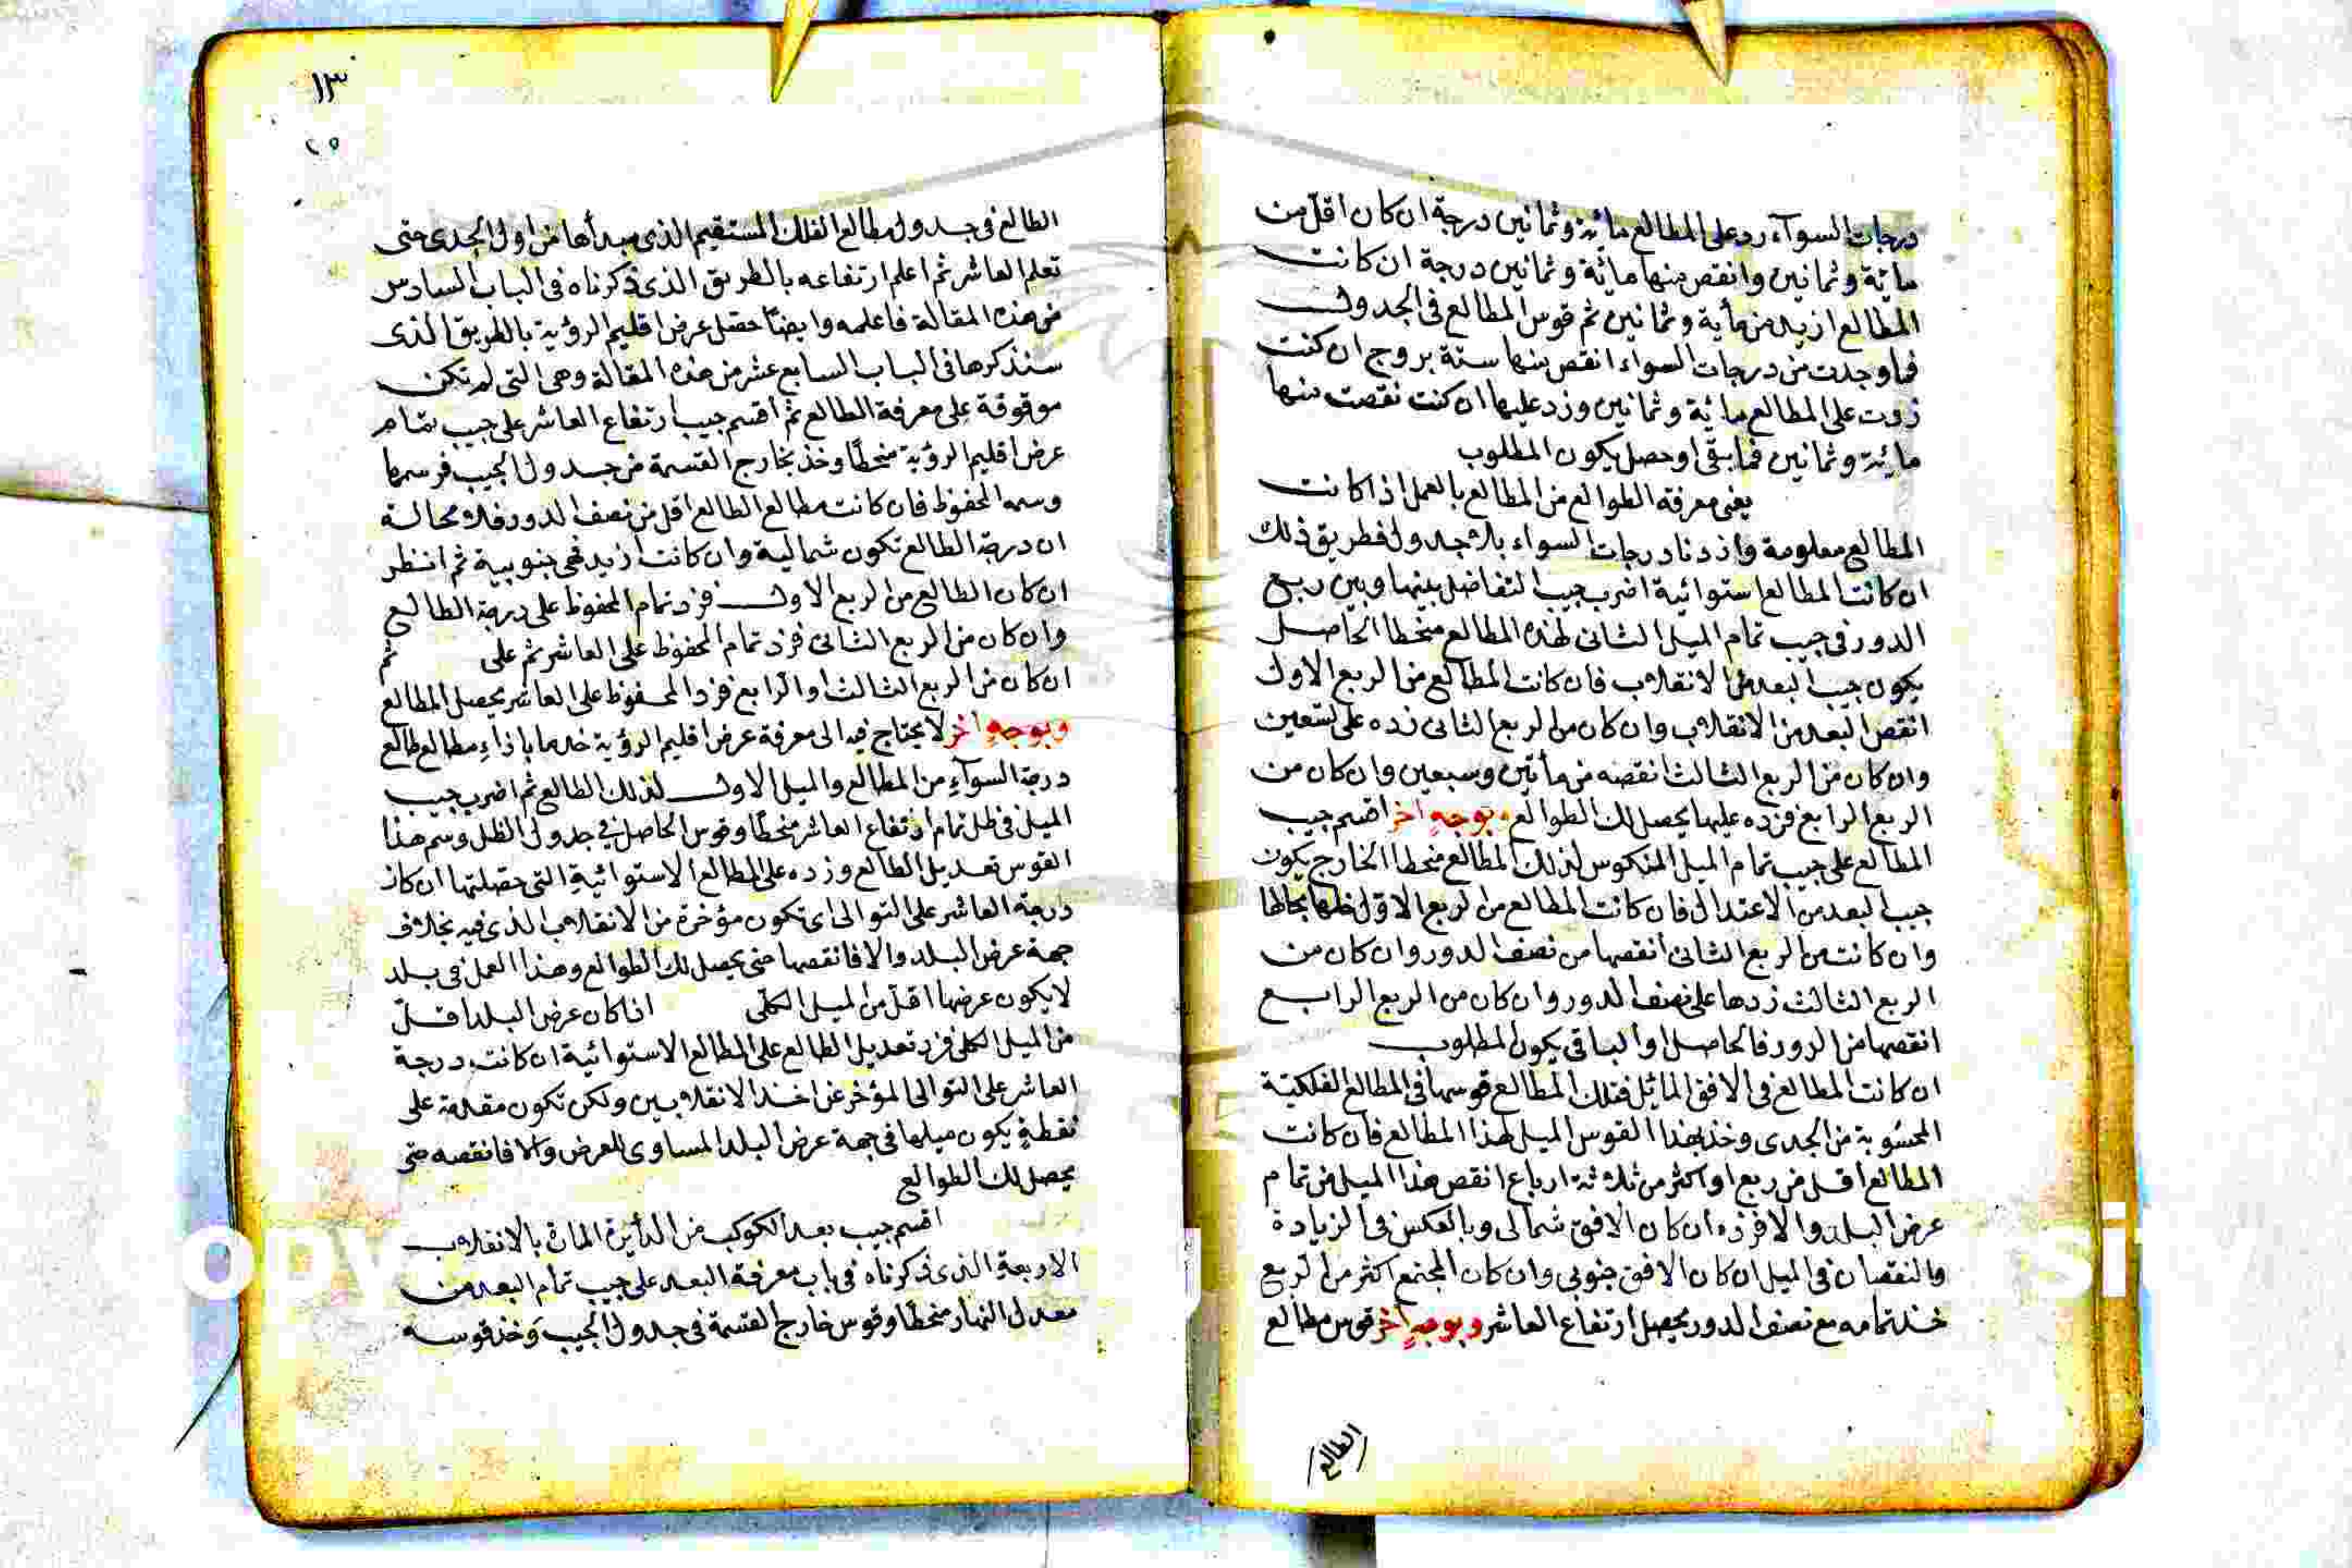 درجات السوآء زد على المطالع مائة وثمانين درجة ان كان اقل من
مائة وثمانين وانقص منها مائة وثمانين درجة ان كانت
المطالع ازيد من مأية وثمانين ثم قوس المطالع فى الجدول
فما وجدت من درجات السواء انقص منها ستة بروج ان كنت
زدت على المطالع مائة وثمانين وزد عليها ان كنت نقصت منها
مائة وثمانين فما بقى او حصل يكون المطلوب
يعنى معرفة الطوالع من المطالع بالعمل اذا كانت
المطالع معلومة واردنا درجات السواء بلا جدول فطريق ذلك
ان كانت المطالع استوائية اضرب جيب التفاضل بينها وبين ربع
الدور فى جيب تمام الميل الثانى لهذه المطالع منحطا الحاصل
يكون جيب البعد من الانقلاب فان كانت المطالع من الربع الاول
انقص البعد من الانقلاب وان كان من الربع الثانى زده على تسعين
وان كان من الربع الثالث انقصه من مأتين وسبعين وان كان من
الربع الرابع فزده عليها يحصل لك الطوالع وبوجهٍ اخر اقسم جيب
المطالع على جيب تمام الميل المنكوس لذلك المطالع منحطا الخارج يكون
جيب البعد من الاعتدال فان كانت المطالع من الربع الاول خلها بحالها
وان كانت من الربع الثانى انقصها من نصف الدور وان كان من
الربع الثالث زدها على نصف الدور وان كان من الربع الرابع
انقصها من الدور فالحاصل او الباقى يكون المطلوب
ان كانت المطالع فى الافق المائل فتلك المطالع قوسها فى المطالع الفلكية
المحسوبة من الجدى وخذ بهذا القوس الميل لهذا المطالع فان كانت
المطالع اقل من ربع او اكثر من ثلاثة ارباع انقص هذا الميل من تمام
عرض البلد والا فزده ان كان الافق شمالى وبالعكس فى الزيادة
والنقصان فى الميل ان كان الافق جنوبى وان كان المجتمع اكثر من الربع
خذ تمامه مع نصف الدور يحصل ارتفاع العاشر وبوجهٍ اخر قوس مطالع
الطالع
١٣
٢٥
الطالع فى جدول مطالع الفلك المستقيم الذى مبدأها من اول الجدى حتى
تعلم العاشر ثم اعلم ارتفاعه بالطريق الذى ذكرناه فى الباب السادس
من هذه المقالة فاعلمه وايضًا حصل عرض اقليم الرؤية بالطريق الذى
سنذكرها فى الباب السابع عشر من هذه المقالة وهى التى لم تكن
موقوفة على معرفة الطالع ثم اقسم جيب ارتفاع العاشر على جيب تمام
عرض اقليم الرؤية منحطًا وخذ بخارج القسمة من جدول الجيب قوسها
وسمه المحفوظ فان كانت مطالع الطالع اقل من نصف الدور فلا محالة
ان درجة الطالع تكون شمالية وان كانت ازيد فهى جنوبية ثم انظر
ان كان الطالع من الربع الاول فزد تمام المحفوظ على درجة الطالع
وان كان من الربع الثانى فزد تمام المحفوظ على العاشر ثم على ثم
ان كان من الربع الثالث او الرابع فزد المحفوظ على العاشر يحصل المطالع
وبوجهٍ اخر لا يحتاج فيه الى معرفة عرض اقليم الرؤية خذ ما بازاء مطالع طالع
درجة السوآء من المطالع والميل الاول لذلك الطالع ثم اضرب جيب
الميل فى ظل تمام ارتفاع العاشر منحطًا وقوس الحاصل فى جدول الظل وسم هذا
القوس تعديل الطالع وزده على المطالع الاستوائية التى حصلتها ان كان
درجة العاشر على التوالى اى تكون مؤخرة من الانقلاب الذى فيه بخلاف
جهة عرض البلد والا فانقصها حتى يحصل لك الطوالع وهذا العمل فى بلد
لا يكون عرضها اقل من الميل الكلّى اذا كان عرض البلد اقلّ
من الميل الكلى فزد تعديل الطالع على المطالع الاستوائية ان كانت درجة
العاشر على التوالى المؤخر عن احد الانقلابين ولكن تكون مقدمة على
نقطةٍ يكون ميلها فى جهة عرض البلد المساوى للعرض والا فانقصه حتى
يحصل لك الطوالع
اقسم جيب بعد الكوكب من الدائرة المارة بالانقلاب
الاربعةِ الذى ذكرناه فى باب معرفة البعد على جيب تمام البعد من
معدل النهار منحطًا وقوس خارج القسمة فى جدول الجيب وخذ قوسه